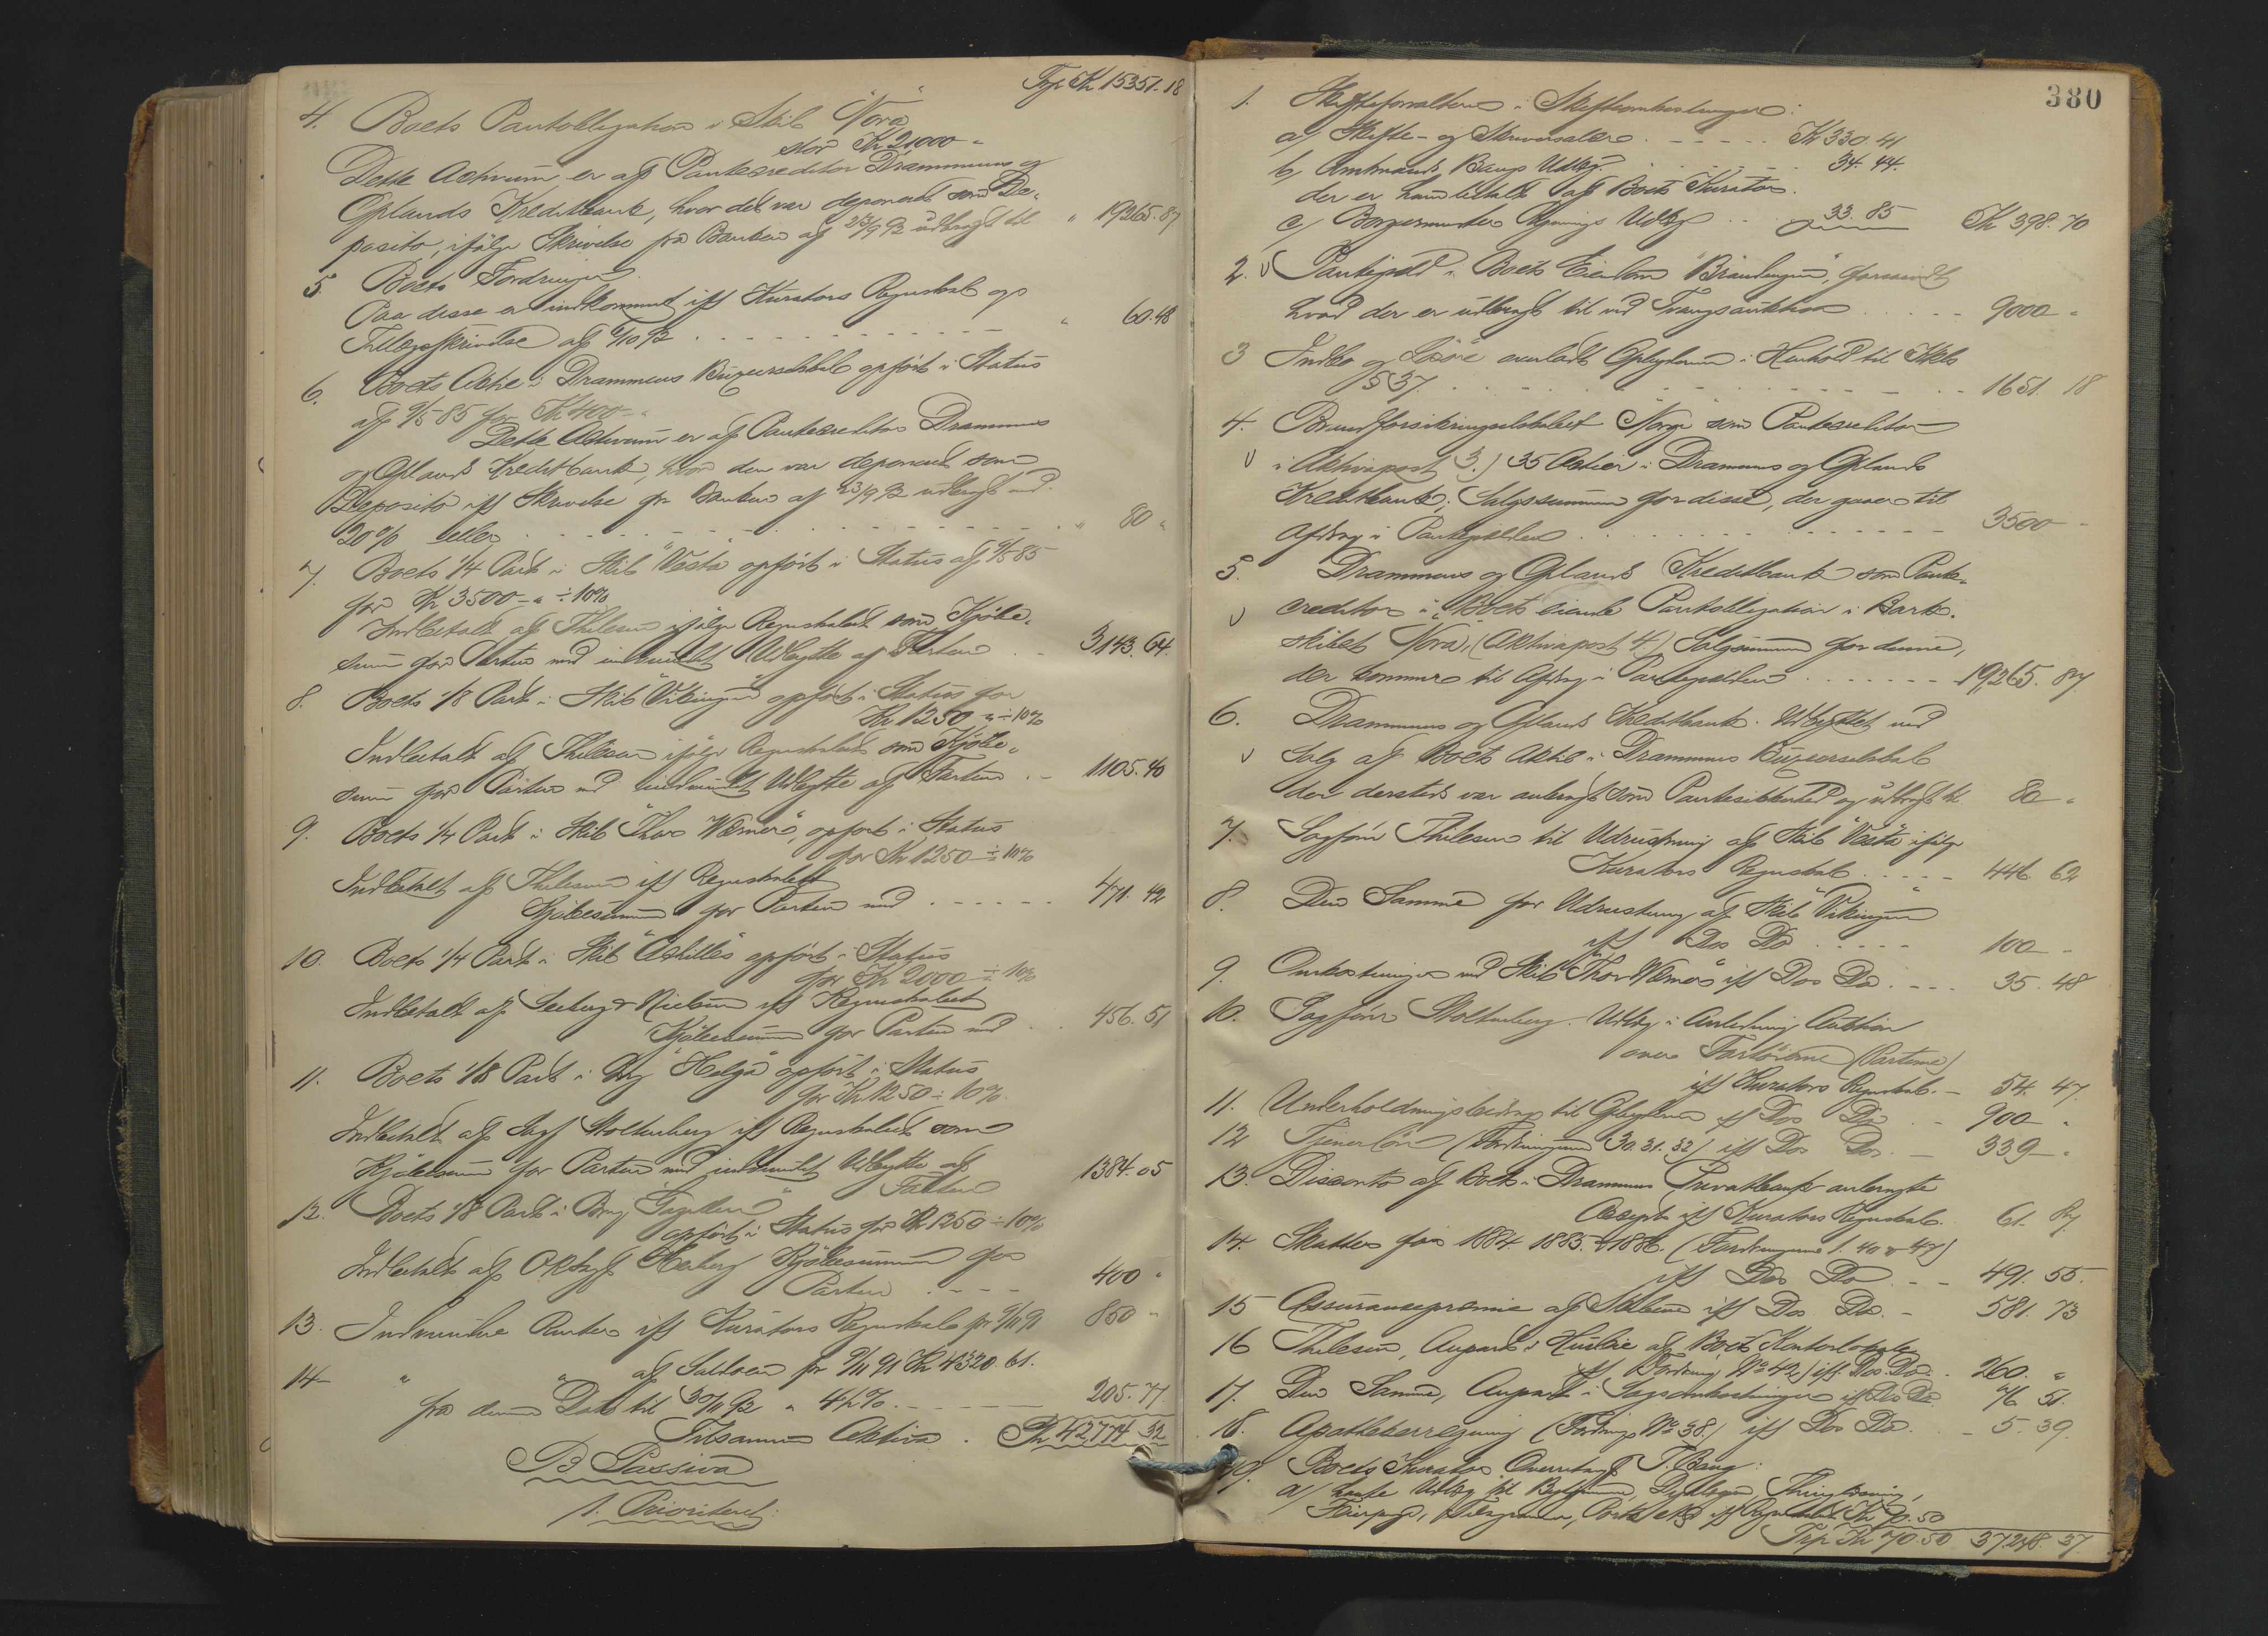 Trp Kr 15351.18
4. Boets Pantobligation i Skib "Nora"
stor Kr 21000 "
Dette Activum er af Pantecreditor Drammens og
Oplands Kreditbank, hvor det var deponeret som De-
posito, ifølge Skrivelse fra Banken af 23/9 92 udbragt til " 19265.87
5. Boets Fordringer.
Paa disse er indkommet iff Kurators Regnskab og
Tillægsskrivelse af /10 92 . . . " 60.48
6. Boets Actie i Drammens Bugserselskab opført i Status
af 9/5 85 for Kr. 400 - "
Dette Activum er af Pantecreditor Drammens
og Oplands Kreditbank, hvor den var deponeret som
Deposito iff Skrivelse fra Banken af 23/9 92 udbragt med
20% eller . . . " 80 "
7. Boets 1/4 Part i Skib "Vesta" opført i Status af 9/5 85
for Kr 3500 - " ÷ 10%
Indbetalt af Thilesen ifølge Regnskabet som Kjøbe-
sum for Parten med indvundet Udbytte af Farten . . 3143.64.
8. Boets 1/8 Part i Skib "Vikingen" opført i Status for
Kr 1250 " ÷ 10%
Indbetalt af Thilesen ifølge Regnskabet som Kjøbe-
sum for Parten med indvundet Udbytte af Farten . - 1105.40
9. Boets 1/4 Part i Skib "Thor Wæmer", opført i Status
for Kr 1250 ÷ 10%
Indbetalt af Thilesen iff Regnskabet
Kjøbesummen for Parten med . . . 471.42
10. Boets 1/4 Part i Skib "Achilles" opført i Status
for Kr 2000 ÷ 10%
Indbetalt af Seeberg & Nielsen iff Regnskabet
Kjøbesummen for Parten med . . 456.51
11. Boets 1/8 Part i Brg "Helga" opført i Status
for Kr 1250 ÷ 10%.
Indbetalt af Sagf Stoltenberg iff Regnskabet som
Kjøbesum for Parten med indvundet Udbytte af
Farten 1384.05
12. Boets 1/8 Part i Brg
opført i Status for Kr 1250 ÷ 10%
Indbetalt af Kjøbesummen for
Parten . . . 400 "
13. Indvundne Renter iff Kurators Regnskab pr 9/11 91 850 "
14 " " af Saldoen pr 9/11 91 Kr 4320.61.
fra denne Dato til 30/11 92 a 4½%. . . . 205.77.
Tilsammen Aktiva . Kr 42,774 32
B Passiva
1. Prioriteret:
380
1. Skifteforvalteren i Skifteomkostninger:
a) Skifte- og Skriversalær . . . Kr 330.41
b) Amtmand Baugs Udlæg . . . 34.44.
der er ham betalt af Boets Kurator.
c) Borgermester Udlæg . . 33.85 Kr 398.70
2. v Pantegjæld i Boets Eiendom "Brændingen", forsaavidt
hvad der er udbragt til ved Tvangsauktion . . . 9000 "
3 Indbo og Løsøre overladt Opbyderen i Henhold til Skl
§ 37. . . . 1651. 18
4. Brandforsikringsselskabet Norge som Pantecreditor
v i Aktivapost 3.) 35 Actier i Drammens og Oplands
Kreditbank; Salgssummen for disse, der gaaer til
Afdrag i Pantegjælden . . . 3500 -
5. Drammens og Oplands Kreditbank som Pante-
v creditor i Boets eiende Pantobligation i Bark-
skibet "Nora", (Aktivapost 4.) Salgssummen for denne,
der kommer til Afdrag i Pantegjælden . . . 19,265. 87.
6. Drammens og Oplands Kreditbank. Udbyttet ved
v Salg af Boets Aktie i Drammens Bugserselskab
der dersteds var anbragt som Pantesikkerhed og udbragt til 80 "
7. Sagfører Thilesen til Udrustning af Skib "Vesta" ifølge
Kurators Regnskab . . . 446. 62
8. Den Samme for Udrustning af Skib "Vikingen"
iff Dos Do . . . 100 -
9. Omkostninger ved Skib "Thor Wæmer" iff Dos Do . . . 35. 48
10. Sagfører Stoltenberg. Udlæg i Anledning Auktion
over Fartøierne (Parterne)
iff Kurators Regnskab. - 54. 47.
11. Underholdningsbidrag til Opbyderen iff Dos Do . . 900 "
12 Tjenerløn (Fordringerne 30. 31. 32) iff Dos Do. - 339 - "
13. Disconto af Boets i Drammens Privatbank anbragte
Accept iff Kurators Regnskab. 61. 87
14. Skatter for 1884 1885 & 1886. (Fordringerne 1. 40 & 47)
iff Dos Do . - 491. 55.
15 Assurancepræmie af Skibene iff Dos Do. - 581. 73
16 Thilesen, Anpart i Husleie af Boets Kontorlokale
(Fordring No 42) iff Dos. Do. . 260. "
17. Den Samme, Anpart i Sagsomkostninger iff Dos Do. 76 51.
18. Apothekerregning (Fordring No 38.) iff Dos Do. . - 5. 39.
19. Boets Kurator Overretssagf T. Baug:
a) hans Udlæg til Thinglæsning,
Telegrammer, Porto etc iff Regnskabet Kr 70.50
Trp Kr 70.50 37,248. 37.